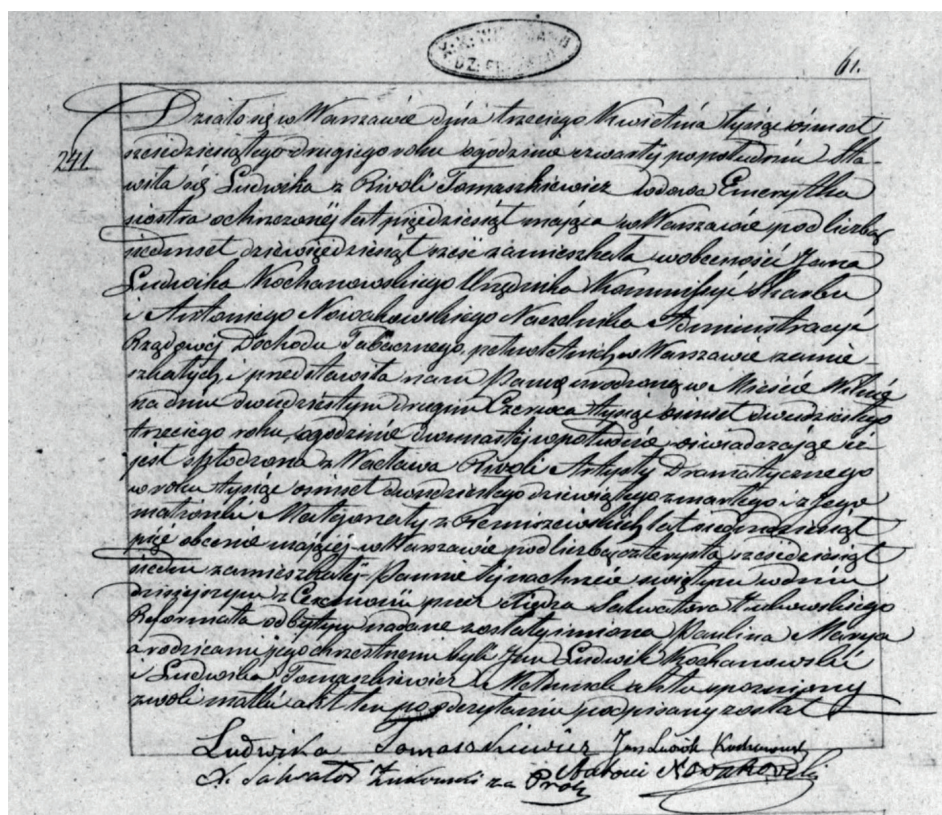 61.
241.
Działo się w Warszawie dnia trzeciego Kwietnia tysiąc ośmset
sześdziesiątego drugiego roku o godzinie czwarty po południu Sta-
wiła się Ludwika z Rivoli Tomaszkiewicz wdowa Emerytka
siostra ochrzczonéj lat pięćdziesiąt mająca w Warszawie pod liczbą
siedmset dziewięćdziesiąt sześć zamieszkała w obecności Jana
Ludwika Kochanowskiego Urzędnika Kommissyi Skarbu
i Antoniego Nowakowskiego Naczelnika Administracyi
Rządowéj Dochodu Tabacznego pełnoletnich w Warszawie zamie-
szkałych i przedstawiła nam Pannę urodzoną w Mieście Wilnie
na dniu dwudziestym drugim Czerwca tysiąc ośmset dwudziestego
trzeciego roku, o godzinie dwunastéj w południe, oświadczając iż
jest spłodzona z Wacława Rivoli Artysty Dramatycznego
w roku tysiąc ośmset dwudziestego dziewiątego zmarłego i z Jego
małżonki Małgorzaty z lat siedmdziesiąt
pięć obecnie mającéj w Warszawie pod liczbą czterysta sześćdziesiąt
siedm zamieszkałéj. Pannie téj na chrzcie świętym w dniu
dzisiejszym z Ceremonii przez Księdza Salwatora
Reformata odbytym nadane zostały imiona Paulina Marya
a rodzicami jego chrzestnemi byli Jan Ludwik Kochanowski
i Ludwika Tomaszkiewicz. Akt ten opóźniony
z woli matki akt ten po odczytaniu podpisany został
Ludwika Tomaszkiewicz Jan Ludwik Kochanowski
X. Salvator Żukowski za Prob Antoni Nowakowski